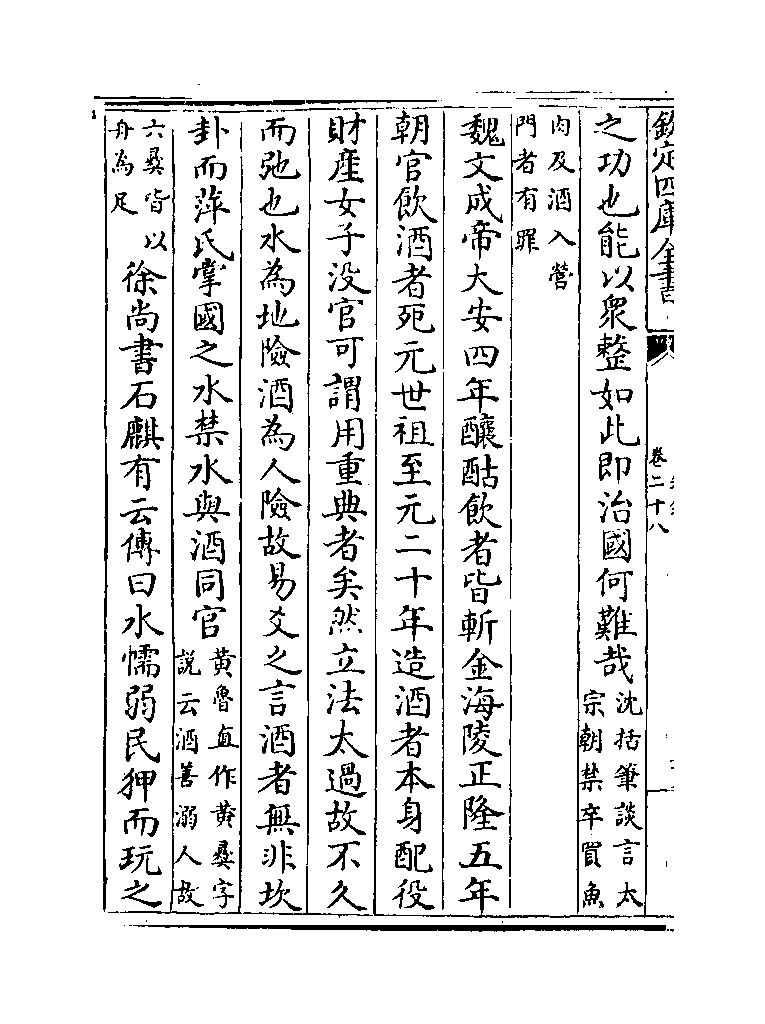 欽定四庫全書
卷二十八
之功也能以衆整如此即治國何難哉沈括筆談言太
宗朝禁卒買魚
肉及酒入營
門者有罪
魏文成帝大安四年釀酤飲者皆斬金海陵正隆五年
朝官飲酒者死元世祖至元二十年造酒者本身配役
財產女子没官可謂用重典者矣然立法太過故不久
而弛也水為地險酒為人險故易爻之言酒者無非坎
卦而萍氏掌國之水禁水與酒同官黄魯直作黄彞字
説云酒善溺人故
六彞皆以
舟為足徐尚書石麒有云傳曰水懦弱民狎而玩之